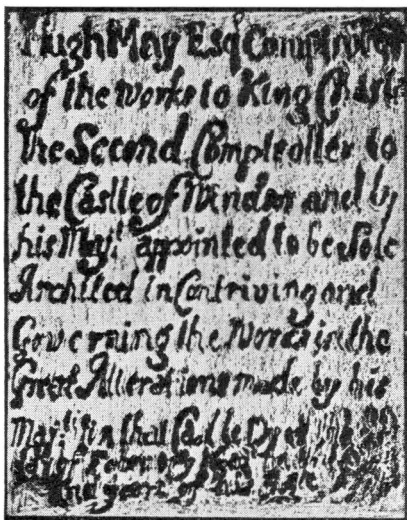 Hugh May Esqr Comptroller
of the works to King Charles
the Second Comptroller to
the Castle of Windsor and by
his Majte appointed to be Sole
Architect in Contriving and
Governing the Works in the
Great Alterations made by his
Majtie in that Castle Dyed
day of February in the
year of his age